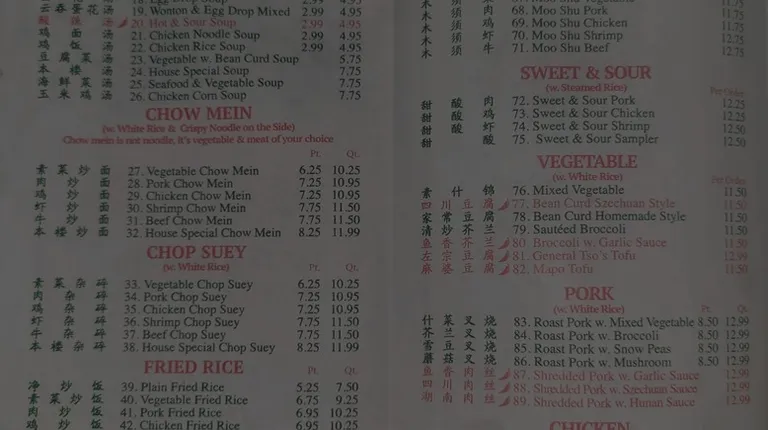 18. Egg Drop Soup 2.99 4.95
云吞蛋花汤 19. Wonton & Egg Drop Mixed 2.99 4.95
酸辣汤 20. Hot & Sour Soup 2.99 4.95
鸡面汤 21. Chicken Noodle Soup 2.99 4.95
鸡饭汤 22. Chicken Rice Soup 2.99 4.95
豆腐菜汤 23. Vegetable w. Bean Curd Soup 5.75
本楼汤 24. House Special Soup 7.75
海鲜菜汤 25. Seafood & Vegetable Soup 7.75
玉米鸡汤 26. Chicken Corn Soup 7.75
CHOW MEIN
(w. White Rice & Crispy Noodle on the Side)
Chow mein is not noodle, it's vegetable & meat of your choice
Pt. Qt.
素菜炒面 27. Vegetable Chow Mein 6.25 10.25
肉炒面 28. Pork Chow Mein 7.25 10.95
鸡炒面 29. Chicken Chow Mein 7.25 10.95
虾炒面 30. Shrimp Chow Mein 7.75 11.50
牛炒面 31. Beef Chow Mein 7.75 11.50
本楼炒面 32. House Special Chow Mein 8.25 11.99
CHOP SUEY
(w. White Rice)
Pt. Qt.
素菜杂碎 33. Vegetable Chop Suey 6.25 10.25
肉杂碎 34. Pork Chop Suey 7.25 10.95
鸡杂碎 35. Chicken Chop Suey 7.25 10.95
虾杂碎 36. Shrimp Chop Suey 7.75 11.50
牛杂碎 37. Beef Chop Suey 7.75 11.50
本楼杂碎 38. House Special Chop Suey 8.25 11.99
FRIED RICE
Pt. Qt.
净炒饭 39. Plain Fried Rice 5.25 7.50
素菜炒饭 40. Vegetable Fried Rice 6.75 9.25
肉炒饭 41. Pork Fried Rice 6.95 10.25
鸡炒饭 42. Chicken Fried Rice 6.95 10.25
11.75
木须肉 68. Moo Shu Pork 11.75
木须鸡 69. Moo Shu Chicken 11.75
木须虾 70. Moo Shu Shrimp 11.75
木须牛 71. Moo Shu Beef 11.75
SWEET & SOUR
(w. Steamed Rice)
Per Order
甜酸肉 72. Sweet & Sour Pork 12.25
甜酸鸡 73. Sweet & Sour Chicken 12.25
甜酸虾 74. Sweet & Sour Shrimp 12.50
甜酸 75. Sweet & Sour Sampler 12.50
VEGETABLE
(w. White Rice)
Per Order
素什锦 76. Mixed Vegetable 11.50
四川豆腐 77. Bean Curd Szechuan Style 11.50
家常豆腐 78. Bean Curd Homemade Style 11.50
清炒芥兰 79. Sautéed Broccoli 11.50
鱼香芥兰 80. Broccoli w. Garlic Sauce 11.50
左宗豆腐 81. General Tso's Tofu 12.99
麻婆豆腐 82. Mapo Tofu 11.50
PORK
(w. White Rice)
Pt. Qt.
什菜叉烧 83. Roast Pork w. Mixed Vegetable 8.50 12.99
芥兰叉烧 84. Roast Pork w. Broccoli 8.50 12.99
雪豆叉烧 85. Roast Pork w. Snow Peas 8.50 12.99
蘑菇叉烧 86. Roast Pork w. Mushroom 8.50 12.99
鱼香肉丝 87. Shredded Pork w. Garlic Sauce 12.99
四川肉丝 88. Shredded Pork w. Szechuan Sauce 12.99
湖南肉丝 89. Shredded Pork w. Hunan Sauce 12.99
CHICKEN